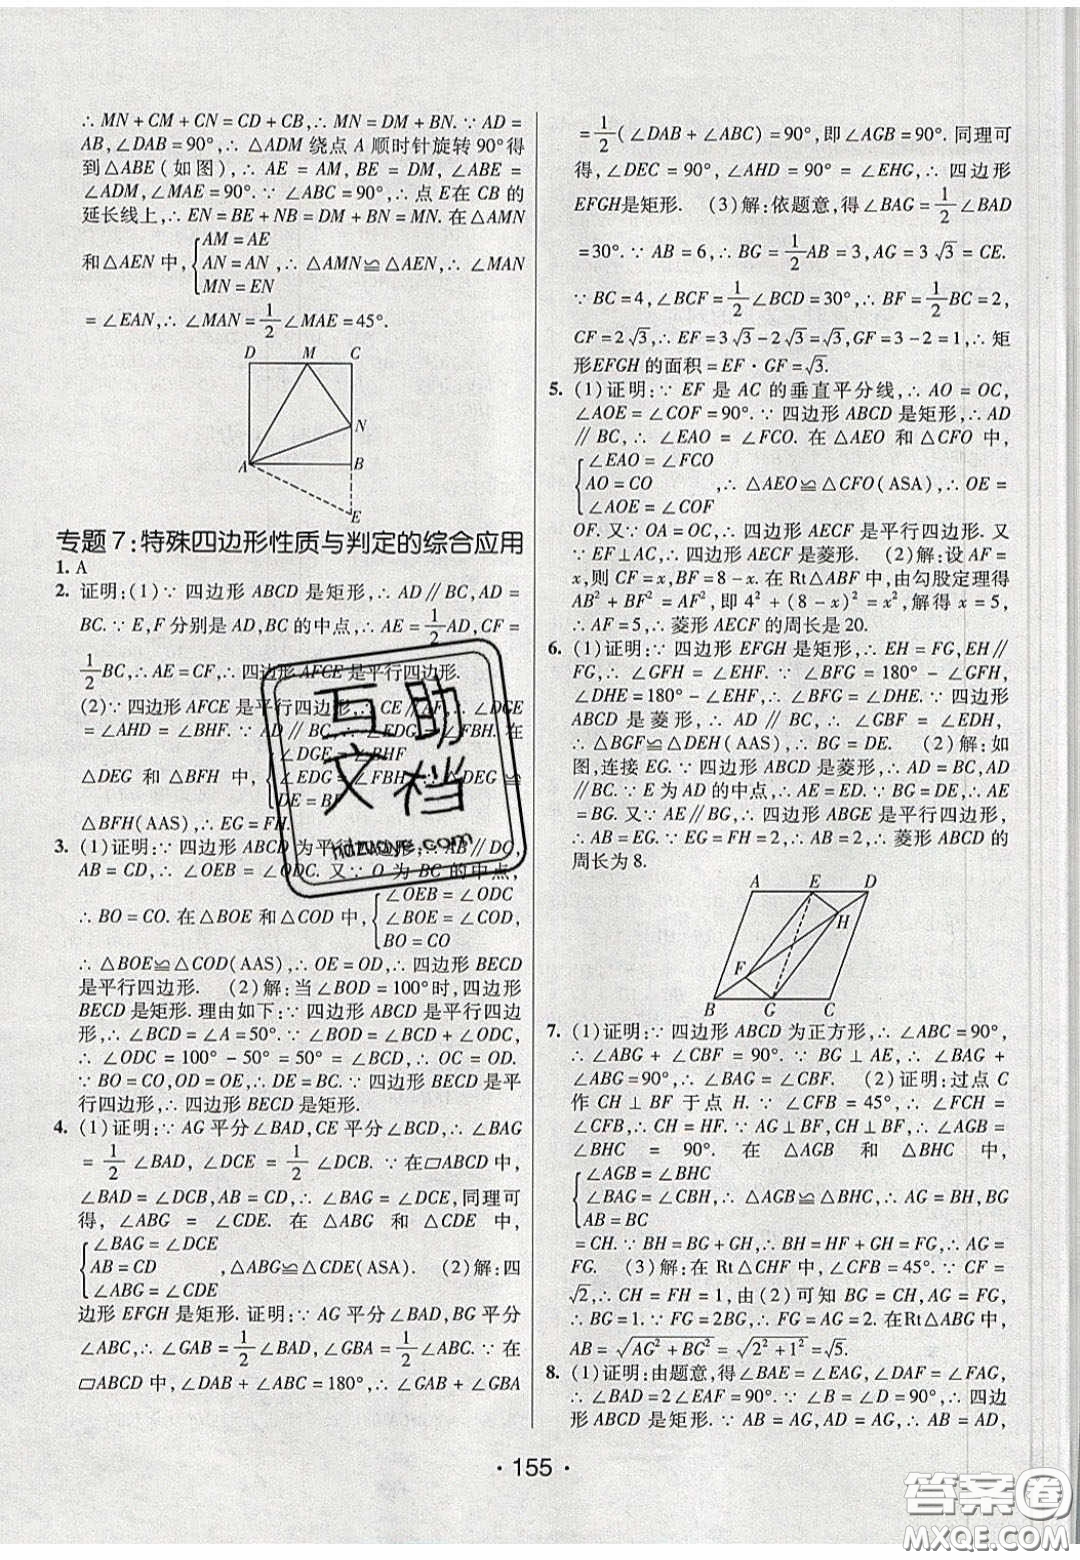 ∴ MN + CM + CN = CD + CB,∴ MN = DM + BN. ∵ AD =
AB, ∠DAB = 90°, ∴ △ADM 绕点 A 顺时针旋转 90°得
到 △ABE (如图), ∴ AE = AM, BE = DM, ∠ABE =
∠ADM, ∠MAE = 90°. ∵ ∠ABC = 90°,∴ 点 E在 CB 的
延长线上,∴ EN = BE + NB = DM + BN = MN. 在 △AMN
和 △AEN 中, {AM = AE
AN = AN ,∴ △AMN≌△AEN,∴ ∠MAN
MN = EN
= ∠EAN,∴ ∠MAN = 1/2 ∠MAE = 45°.
D M C
N
A B
E
专题 7:特殊四边形性质与判定的综合应用
1. A
2. 证明:(1)∵ 四边形 ABCD 是矩形,∴ AD∥BC,AD =
BC. ∵ E,F 分别是 AD,BC 的中点,∴ AE = 1/2 AD,CF =
1/2 BC,∴ AE = CF,∴ 四边形 AFCE 是平行四边形.
(2)∵ 四边形 AFCE 是平行四边形,∴ CE∥AF,∴ ∠DGE
= ∠AHD = ∠BHF. ∵ AD∥BC,∴ ∠EDG = ∠FBH. 在
△DEG 和 △BFH 中, {∠DGE = ∠BHF
∠EDG = ∠FBH ,∴ △DEG ≌
DE = BF
△BFH(AAS),∴ EG = FH.
3. (1)证明:∵ 四边形 ABCD 为平行四边形,∴ AB∥DC,
AB = CD,∴ ∠OEB = ∠ODC. 又∵ O 为 BC 的中点,
∴ BO = CO. 在 △BOE 和 △COD 中, {∠OEB = ∠ODC
∠BOE = ∠COD,
BO = CO
∴ △BOE≌△COD(AAS),∴ OE = OD,∴ 四边形 BECD
是平行四边形. (2)解:当∠BOD = 100°时,四边形
BECD 是矩形. 理由如下:∵ 四边形 ABCD 是平行四边
形,∴ ∠BCD = ∠A = 50°. ∵ ∠BOD = ∠BCD + ∠ODC,
∴ ∠ODC = 100° - 50° = 50° = ∠BCD,∴ OC = OD.
∵ BO = CO,OD = OE,∴ DE = BC. ∵ 四边形 BECD 是平
行四边形,∴ 四边形 BECD 是矩形.
4. (1)证明:∵ AG 平分∠BAD,CE 平分∠BCD,∴ ∠BAG
= 1/2 ∠BAD, ∠DCE = 1/2 ∠DCB. ∵ 在▱ABCD 中,
∠BAD = ∠DCB,AB = CD,∴ ∠BAG = ∠DCE,同理可
得, ∠ABG = ∠CDE. 在 △ABG 和 △CDE 中,
{∠BAG = ∠DCE
AB = CD ,△ABG≌△CDE(ASA). (2)解:四
∠ABG = ∠CDE
边形 EFGH 是矩形. 证明:∵ AG 平分∠BAD,BG 平分
∠ABC,∴ ∠GAB = 1/2 ∠BAD, ∠GBA = 1/2 ∠ABC. ∵ 在
▱ABCD 中, ∠DAB + ∠ABC = 180°,∴ ∠GAB + ∠GBA
= 1/2 (∠DAB + ∠ABC) = 90°,即∠AGB = 90°. 同理可
得, ∠DEC = 90°, ∠AHD = 90° = ∠EHG,∴ 四边形
EFGH是矩形. (3)解:依题意,得∠BAG = 1/2 ∠BAD
=30°. ∵ AB = 6,∴ BG = 1/2 AB = 3,AG = 3√3 = CE.
∵ BC = 4, ∠BCF = 1/2 ∠BCD = 30°,∴ BF = 1/2 BC = 2,
CF = 2√3,∴ EF = 3√3 - 2√3 = √3,GF = 3 - 2 = 1,∴ 矩
形EFGH 的面积 = EF · GF = √3.
5. (1)证明:∵ EF 是 AC 的垂直平分线,∴ AO = OC,
∠AOE = ∠COF = 90°. ∵ 四边形 ABCD 是矩形,∴ AD
∥BC,∴ ∠EAO = ∠FCO. 在 △AEO 和 △CFO 中,
{∠EAO = ∠FCO
AO = CO ,∴ △AEO≌△CFO(ASA),∴ OE =
∠AOE = ∠COF
OF. 又∵ OA = OC,∴ 四边形 AECF 是平行四边形. 又
∵ EF⊥AC,∴ 四边形 AECF 是菱形. (2)解:设 AF =
x,则 CF = x,BF = 8 - x. 在 Rt△ABF 中,由勾股定理得
AB² + BF² = AF²,即 4² + (8 - x)² = x²,解得 x = 5,
∴ AF = 5,∴ 菱形 AECF 的周长是 20.
6. (1)证明:∵ 四边形 EFGH 是矩形,∴ EH = FG,EH∥
FG,∴ ∠GFH = ∠EHF. ∵ ∠BFG = 180° - ∠GFH,
∠DHE = 180° - ∠EHF,∴ ∠BFG = ∠DHE. ∵ 四边形
ABCD 是菱形,∴ AD∥BC,∴ ∠GBF = ∠EDH,
∴ △BGF≌△DEH(AAS),∴ BG = DE. (2)解:如
图,连接 EG. ∵ 四边形 ABCD 是菱形,∴ AD = BC,AD
∥BC. ∵ E 为 AD 的中点,∴ AE = ED. ∵ BG = DE,∴ AE
= BG. 又∵ AE∥BG,∴ 四边形 ABGE 是平行四边形,
∴ AB = EG. ∵ EG = FH = 2,∴ AB = 2,∴ 菱形 ABCD 的
周长为 8.
A E D
H
F
B G C
7. (1)证明:∵ 四边形 ABCD 为正方形,∴ ∠ABC = 90°,
∴ ∠ABG + ∠CBF = 90°. ∵ BG⊥AE,∴ ∠BAG +
∠ABG = 90°,∴ ∠BAG = ∠CBF. (2)证明:过点 C
作 CH⊥BF 于点 H. ∵ ∠CFB = 45°,∴ ∠FCH =
∠CFB,∴ CH = HF. ∵ AG⊥BF,CH⊥BF,∴ ∠AGB =
∠BHC = 90°. 在 △AGB 和 △BHC 中,
{∠AGB = ∠BHC
∠BAG = ∠CBH,∴ △AGB≌△BHC,∴ AG = BH,BG
AB = BC
= CH. ∵ BH = BG + GH,∴ BH = HF + GH = FG,∴ AG =
FG. (3)解:在 Rt△CHF 中, ∠CFB = 45°. ∵ CF =
√2,∴ CH = FH = 1,由(2)可知 BG = CH,AG = FG,∴
BG = 1. ∵ FG = 2BG,∴ FG = AG = 2. 在Rt△ABG 中,
AB = √(AG² + BG²) = √(2² + 1²) = √5.
8. (1)证明:由题意,得∠BAE = ∠EAG, ∠DAF = ∠FAG,
∴ ∠BAD = 2∠EAF = 90°. ∵ ∠B = ∠D = 90°,∴ 四边
形 ABCD 是矩形. ∵ AB = AG,AD = AG,∴ AB = AD,
· 155 ·
互助
文档
hdzuoye.com
答案卷
MXQE.COM